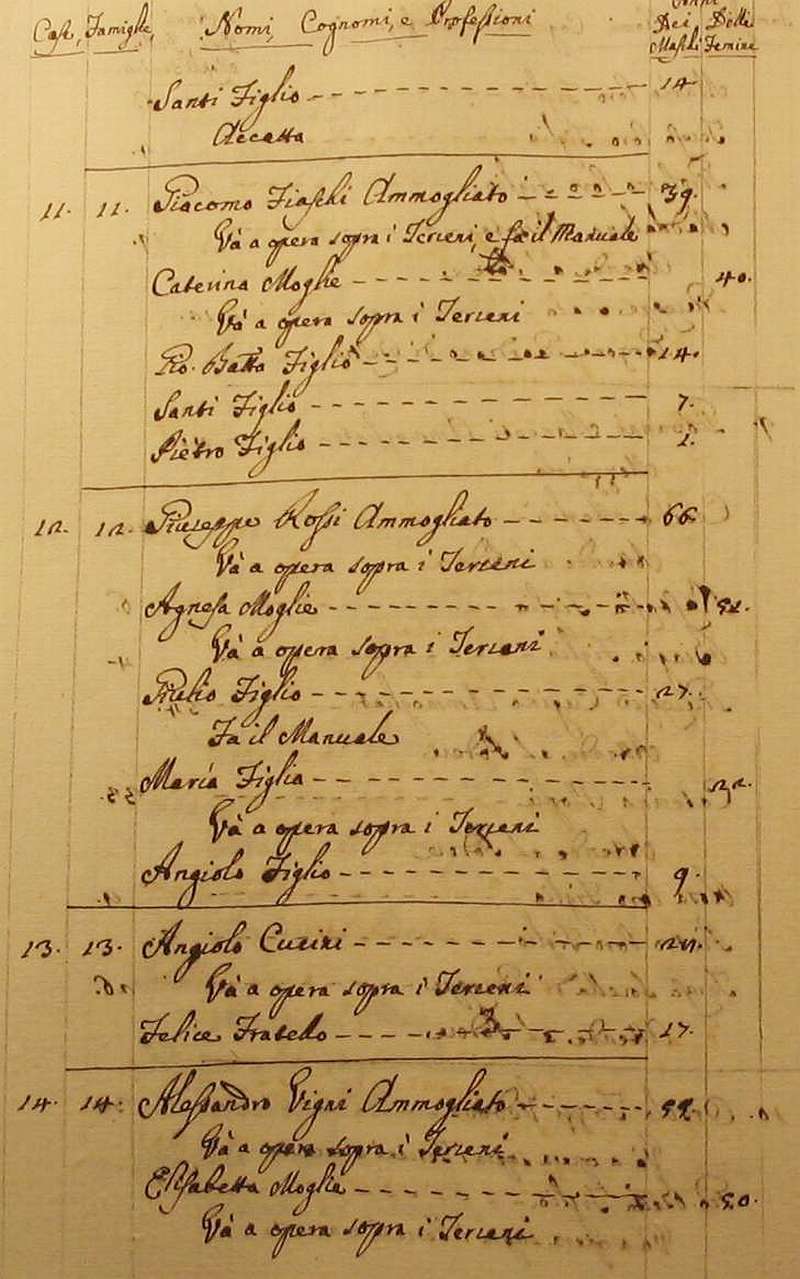 Case, Famiglie, Nomi, Cognomi, e Professioni Anni Dei Maschi Delle Femine
Santi Figlio 14
Accatta
11. 11. Giacomo Fiaschi Ammogliato 39.
Và a opera sopra i Terreni, e fà il Manuale
Caterina Moglie 40.
Và a opera sopra i Terreni
Gio. Batta Figlio 14.
Santi Figlio 7.
Pietro Figlio 1.
12. 12. Giuseppe Rossi Ammogliato 66
Và a opera sopra i Terreni
Agnesa Moglie
Và a opera sopra i Terreni
Giulio Figlio 27.
Fa il Manuale
Maria Figlia 22.
Và a opera sopra i Terreni
Angiolo Figlio 9.
13. 13. Angiolo Cucini
Và a opera sopra i Terreni
Felice Fratello 17.
14. 14. Alessandro Vigni Ammogliato
Và a opera sopra i Terreni
Elisabetta Moglie 50.
Và a opera sopra i Terreni